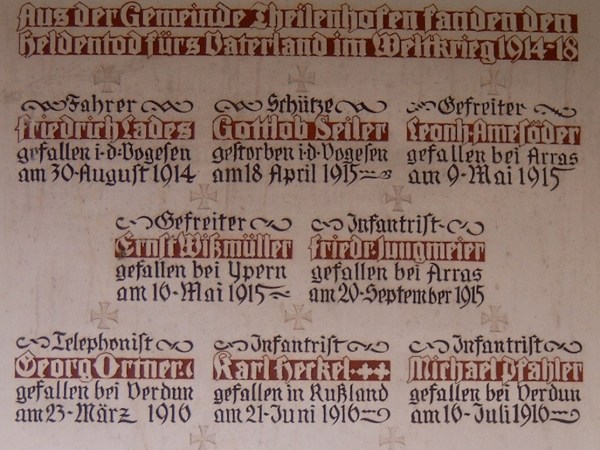 Aus der Gemeinde Theilenhofen fanden den
Heldentod fürs Vaterland im Weltkrieg 1914-18
Fahrer
Friedrich Lades
gefallen i·d·Vogesen
am 30·August 1914
Schütze
Gottlob Seiler
gestorben i·d·Vogesen
am 18 April 1915
Gefreiter
Leonh·Amesöder
gefallen bei Arras
am 9·Mai 1915
Gefreiter
Ernst Wißmüller
gefallen bei Ypern
am 16·Mai 1915
Infantrist
Friedr·Jungmeier
gefallen bei Arras
am 20·September 1915
Telephonist
Georg Ortner
gefallen bei Verdun
am 23·März 1916
Infantrist
Karl Herkel
gefallen in Rußland
am 21·Juni 1916
Infantrist
Michael Pfahler
gefallen bei Verdun
am 16·Juli 1916